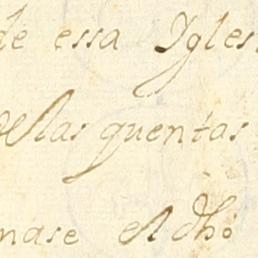 de essa Igles
delas quentas
nase el dho